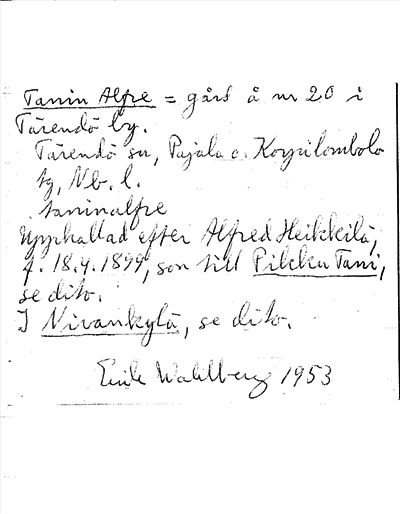 Tanin Alfre = gård å nr 20 i
Tärendö by.
Tärendö sn, Pajala o. Korpilombolo
tg, Nb. l.
taninalfre
Uppkallad efter Alfred Heikkilä,
f. 18.4.1899, son till Pilkku Tani,
se dito.
I Nivankylä, se dito.
Erik Wahlberg 1953